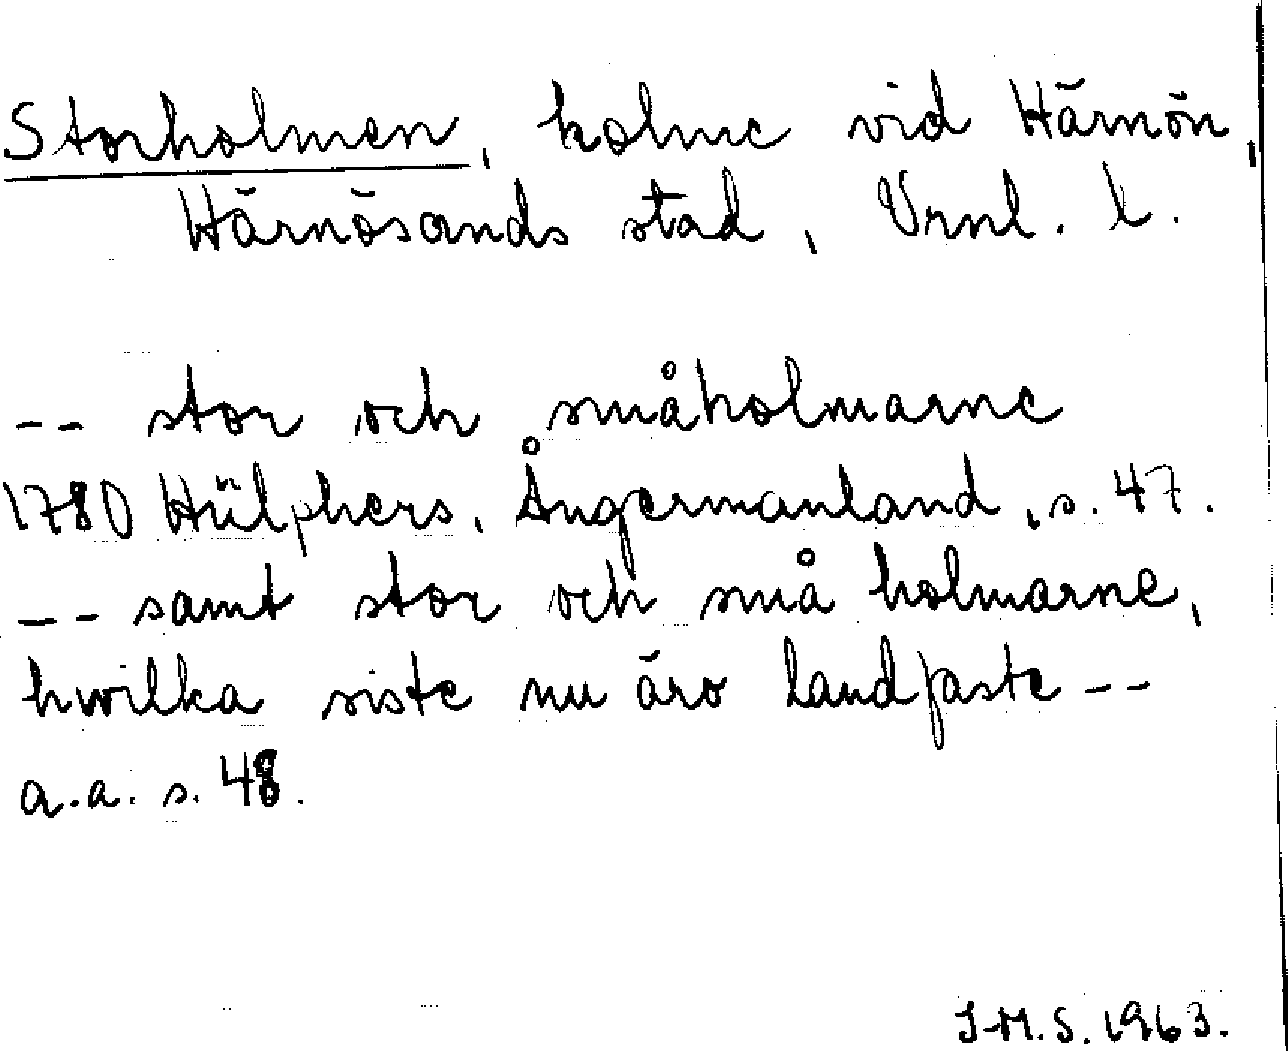 Storholmen, holme vid Härnön,
Härnösands stad, Vrnl. l.
-- stor och småholmarne
1780 Hülphers, Ångermanland, s. 47.
-- samt stor och små holmarne,
hwilka siste nu äro landfaste --
a.a. s. 48.
J-M.S. 1963.